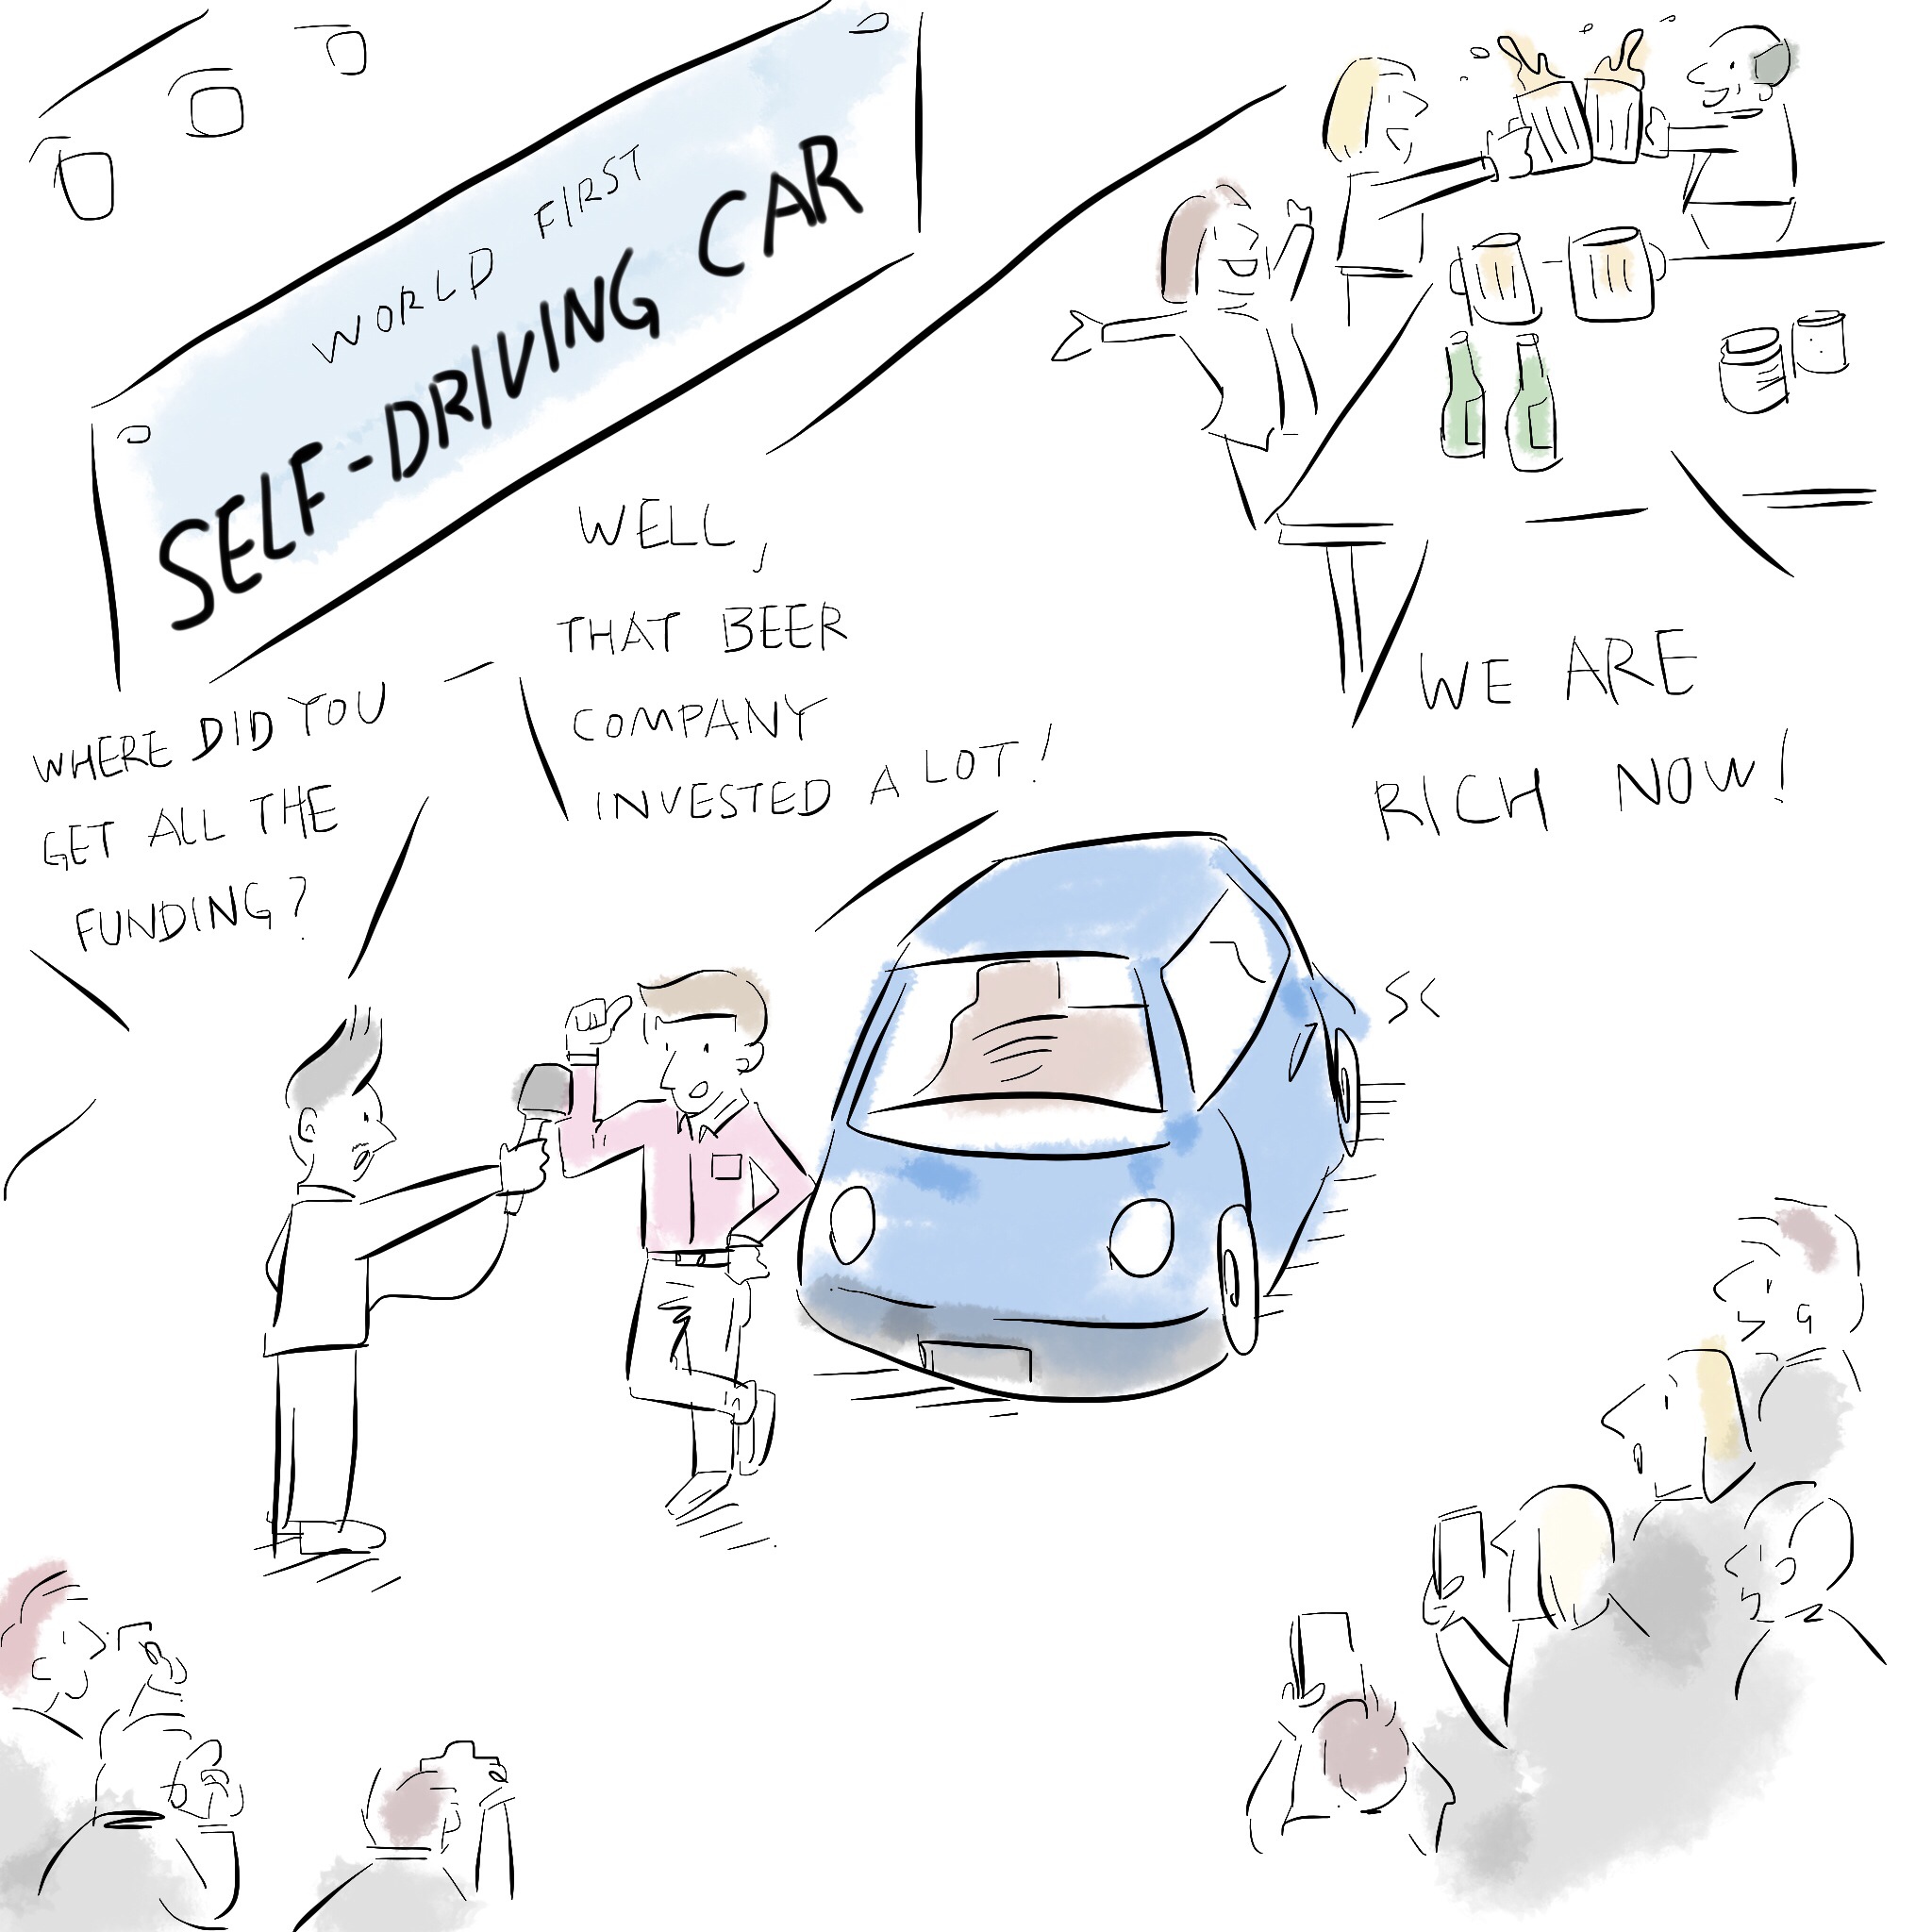 WORLD FIRST
SELF-DRIVING CAR
WHERE DID YOU
GET ALL THE
FUNDING?
WELL,
THAT BEER
COMPANY
INVESTED A LOT!
WE ARE
RICH NOW!
SC